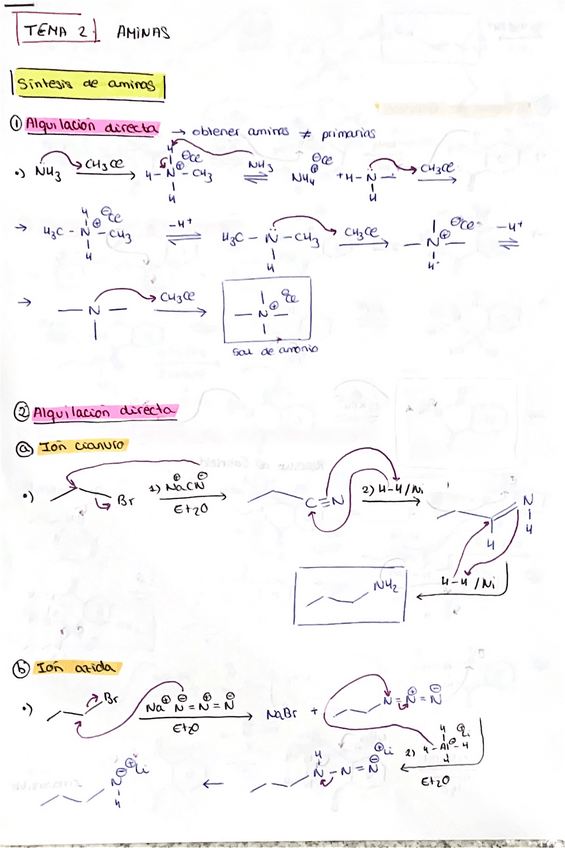 TEMA 2. AMINAS
Síntesis de aminas
① Alquilación directa → obtener aminas ≠ primarias
•) NH3 CH3Cl → H-N-CH3 ⊕ ⊖Cl H H NH3 ⇌ NH4 ⊕ ⊖Cl + H-N- H CH3Cl →
→ H3C-N-CH3 H ⊕ ⊖Cl H -H+ ⇌ H3C-N-CH3 H CH3Cl → -N- ⊕ ⊖Cl H -H+ ⇌
→ -N- CH3Cl → -N- ⊕ ⊖Cl
sal de amonio
② Alquilación directa
ⓐ Ion cianuro
•) Br 1) Na⊕ CN⊖ → Et2O C≡N 2) H-H/Ni → N H H
NH2 ← H-H/Ni
ⓑ Ion azida
•) Br Na⊕ N⊖=N⊕=N⊖ → Et2O NaBr + N=N⊕=N⊖
2) H-Al-H H H ⊖ ⊕Li Et2O
N⊖ ⊕Li H ← N-N=N⊖ ⊕Li H